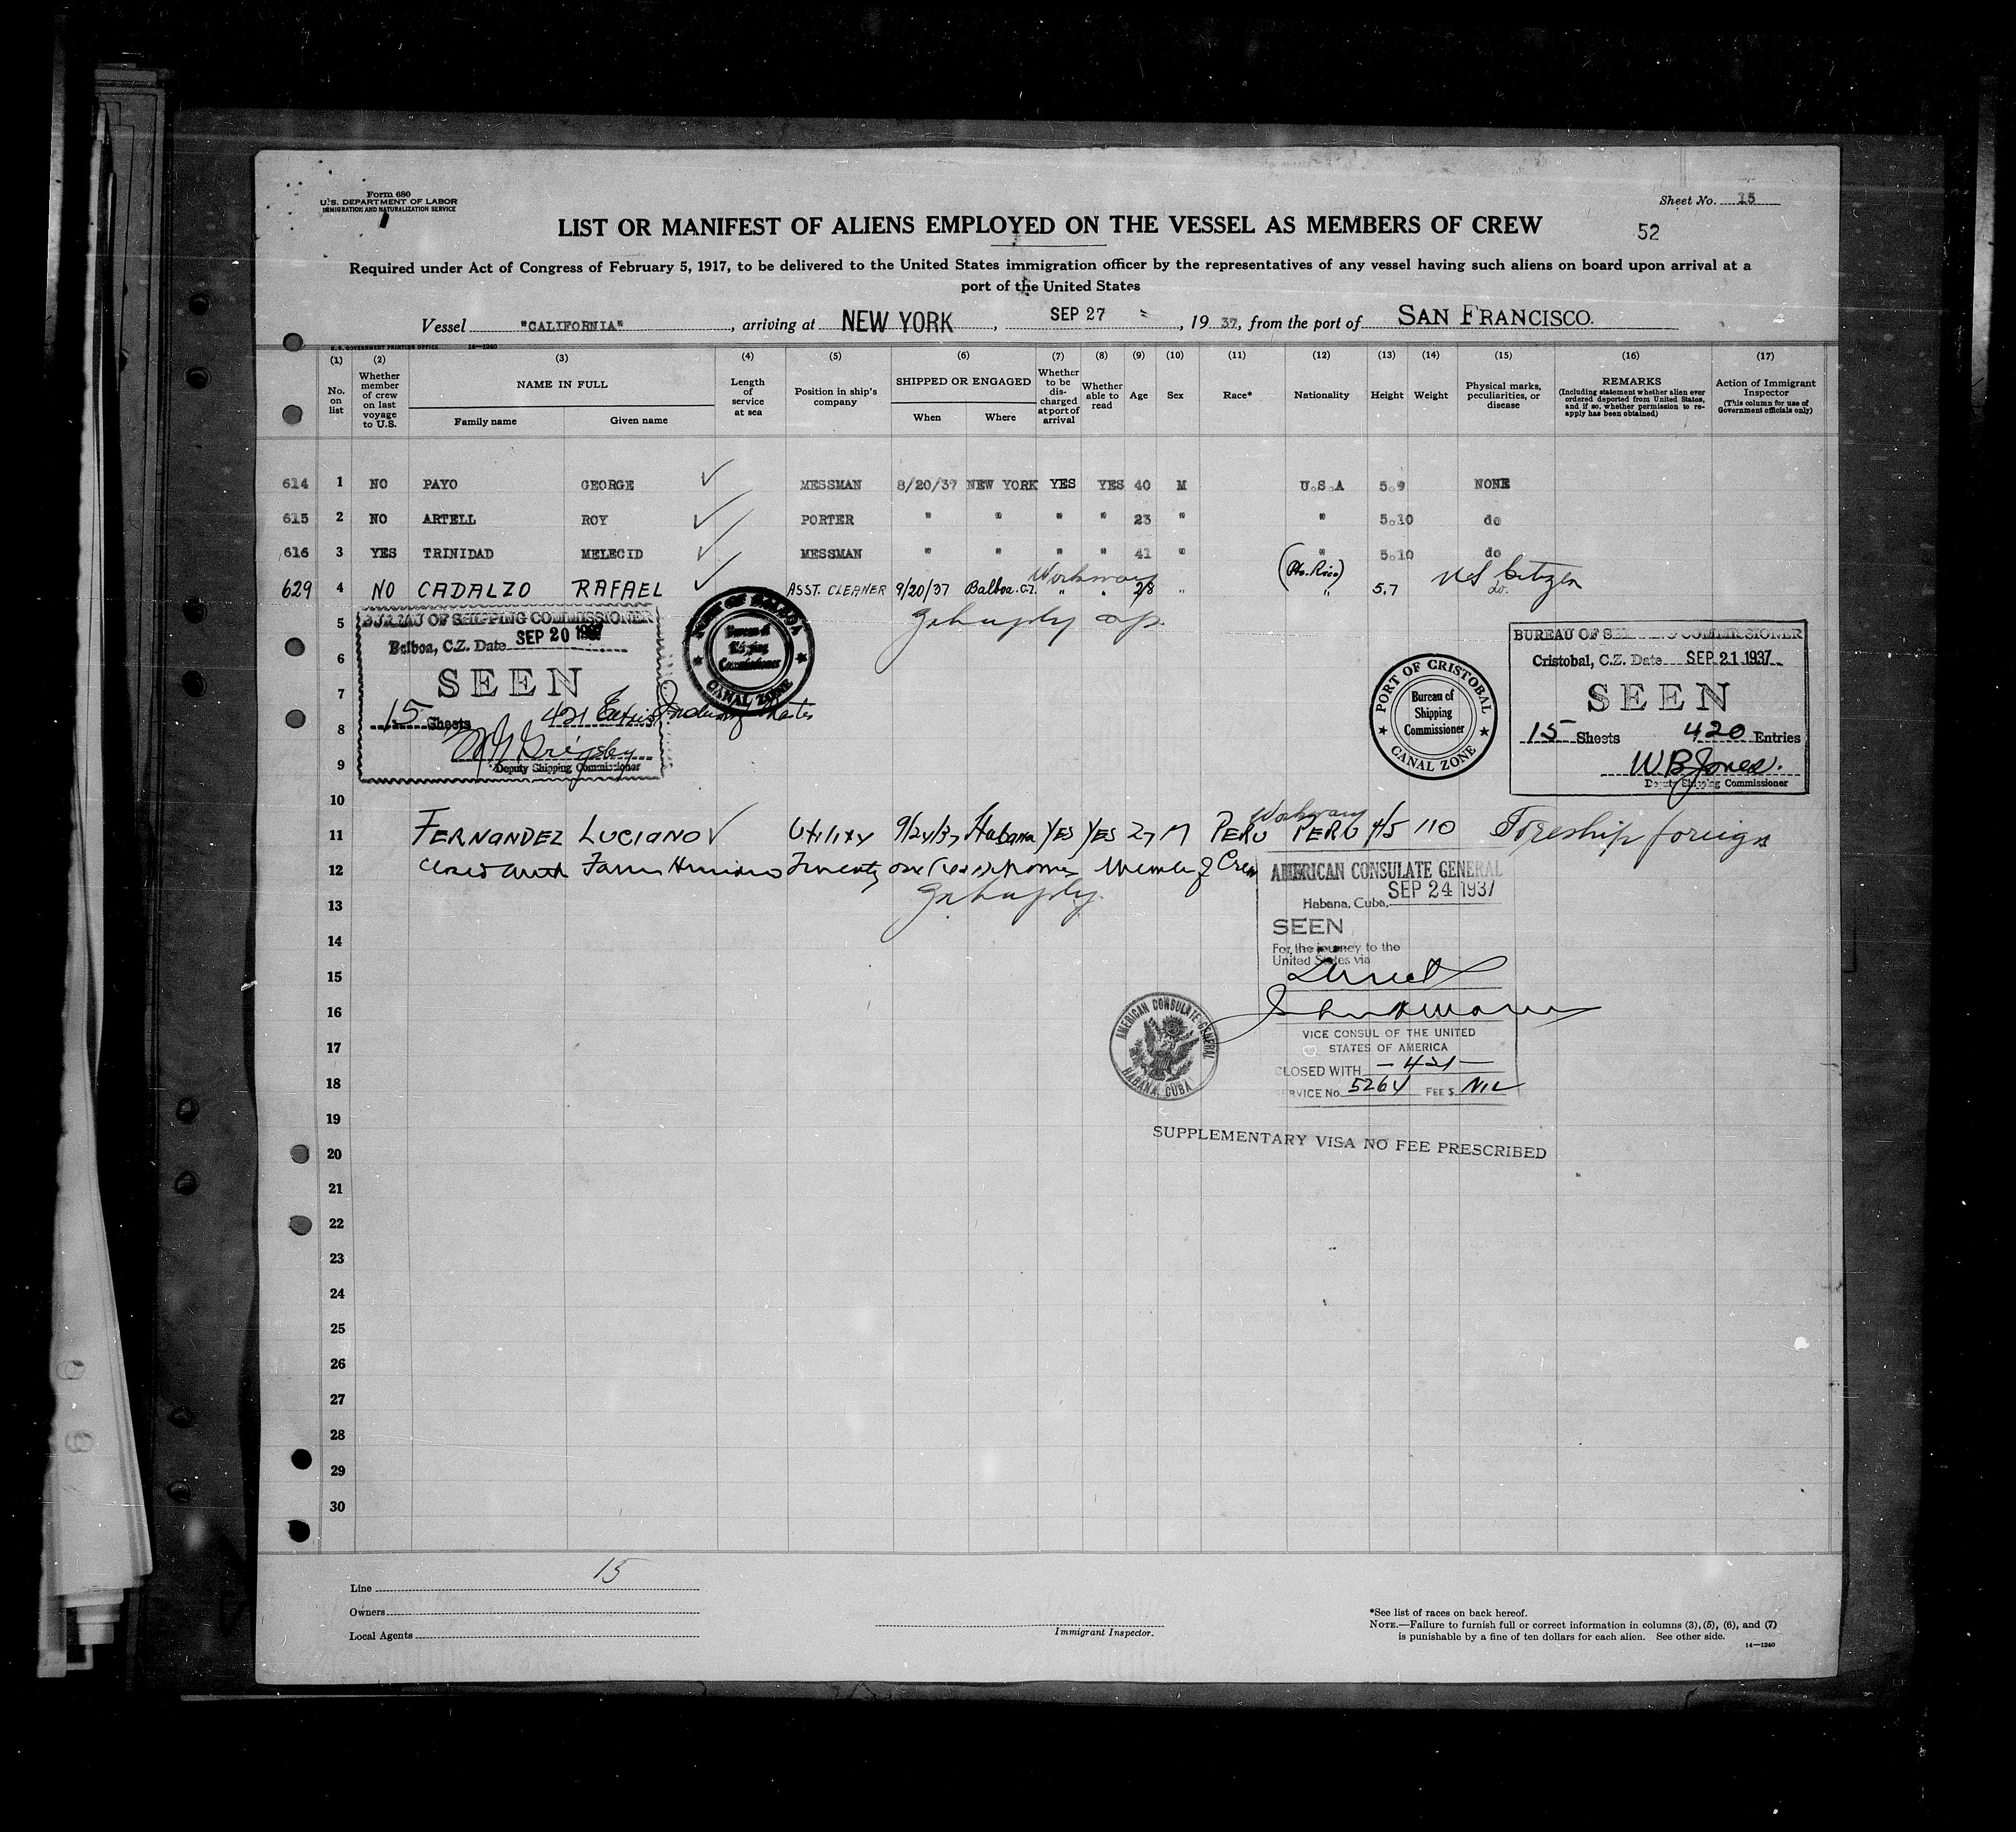 Form 680
U.S. DEPARTMENT OF LABOR
IMMIGRATION AND NATURALIZATION SERVICE
Sheet No. 15
LIST OR MANIFEST OF ALIENS EMPLOYED ON THE VESSEL AS MEMBERS OF CREW
52
Required under Act of Congress of February 5, 1917, to be delivered to the United States immigration officer by the representatives of any vessel having such aliens on board upon arrival at a
port of the United States
Vessel "CALIFORNIA", arriving at NEW YORK, SEP 27, 1937, from the port of SAN FRANCISCO.
U.S. GOVERNMENT PRINTING OFFICE 14—1240
(1) (2) (3) (4) (5) (6) (7) (8) (9) (10) (11) (12) (13) (14) (15) (16) (17)
No. on list
Whether member of crew on last voyage to U.S.
NAME IN FULL
Family name Given name
Length of service at sea
Position in ship's company
SHIPPED OR ENGAGED
When Where
Whether to be discharged at port of arrival
Whether able to read
Age
Sex
Race*
Nationality
Height
Weight
Physical marks, peculiarities, or disease
REMARKS
(Including statement whether alien ever ordered deported from United States, and if so, whether permission to reapply has been obtained)
Action of Immigrant Inspector
(This column for use of Government officials only)
614 1 NO PAYO GEORGE ✓ MESSMAN 8/20/37 NEW YORK YES YES 40 M U.S.A 5.9 NONE
615 2 NO ARTELL ROY ✓ PORTER " " " " 23 " " 5.10 do
616 3 YES TRINIDAD MELECIO ✓ MESSMAN " " " " 41 " " 5.10 do
Workaway (Pto. Rico) US Citizen
629 4 NO CADALZO RAFAEL ✓ ASST. CLEANER 9/20/37 Balboa. C.Z. " " 28 " " 5.7 do.
5
6
7
8
9
10
BUREAU OF SHIPPING COMMISSIONER
Balboa, C.Z. Date SEP 20 1937
SEEN
15 Sheets 421 Entries Including Master
Deputy Shipping Commissioner
PORT OF BALBOA
Bureau of
Shipping
Commissioner
CANAL ZONE
PORT OF CRISTOBAL
Bureau of
Shipping
Commissioner
CANAL ZONE
BUREAU OF SHIPPING COMMISSIONER
Cristobal, C.Z. Date SEP 21 1937
SEEN
15 Sheets 420 Entries
W B Jones.
Deputy Shipping Commissioner
Workaway
11 FERNANDEZ LUCIANO ✓ Utility 9/24/37 Habana YES YES 27 M PERU PERU 4/5 110 foreign
12 Closed with Four Hundred Twenty one Members of Crew
13
14
15
16
17
18
19
20
21
22
23
24
25
26
27
28
29
30
AMERICAN CONSULATE GENERAL
SEP 24 1937
Habana, Cuba,
SEEN
For the journey to the
United States via
Direct
VICE CONSUL OF THE UNITED
STATES OF AMERICA
CLOSED WITH — 421 —
SERVICE No. 5264 FEE $ NIL
AMERICAN CONSULATE GENERAL
HABANA, CUBA
SUPPLEMENTARY VISA NO FEE PRESCRIBED
15
Line
Owners
Local Agents
Immigrant Inspector.
*See list of races on back hereof.
NOTE.—Failure to furnish full or correct information in columns (3), (5), (6), and (7)
is punishable by a fine of ten dollars for each alien. See other side.
14—1240